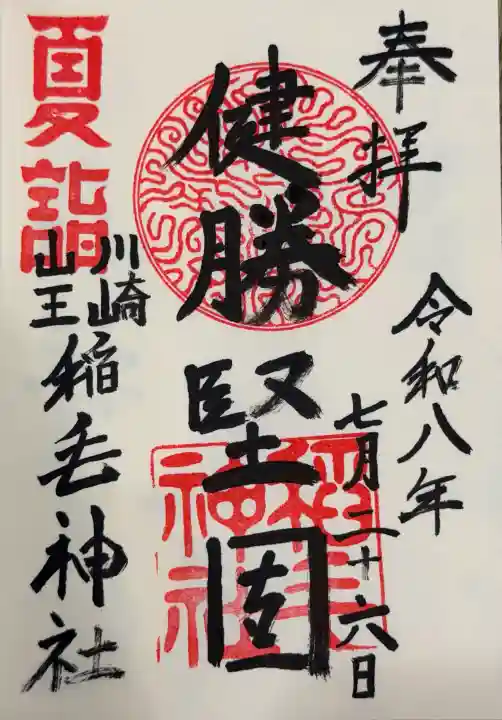 奉拝
令和八年
七月二十六日
健勝堅固
夏詣
川崎
山王
稲毛神社
稲毛
神社